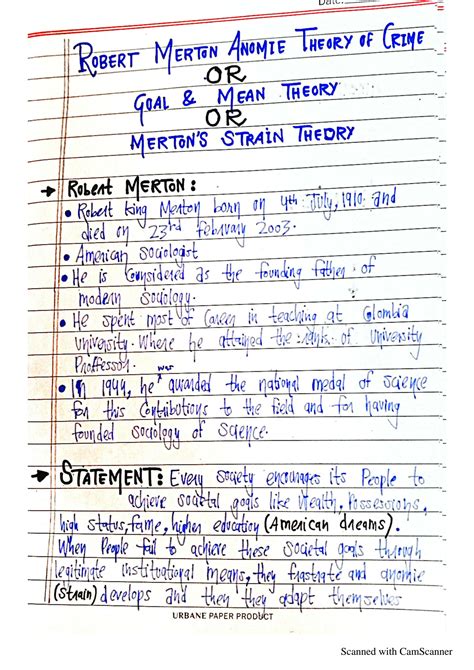 Date:
ROBERT MERTON ANOMIE THEORY OF CRIME
OR
GOAL & MEAN THEORY
OR
MERTON'S STRAIN THEORY
→ Robert MERTON:
• Robert king Merton born on 4th July, 1910 and
died on 23rd february 2003.
• American sociologist
• He is Considered as the founding father of
modern sociology.
• He spent most of Career in teaching at Colombia
University. Where he attained the rank of University
Proffessor.
• In 1944, he was awarded the national medal of science
for this Contributions to the field and for having
founded sociology of Science.
→ STATEMENT: Every society encourages its People to
achieve societal goals like Wealth, Possessions,
high status, fame, higher education (American dreams).
When People fail to achieve these societal goals through
legitimate institutional means, they frustrate and anomie
(strain) develops and then they adapt themselves
URBANE PAPER PRODUCT
Scanned with CamScanner